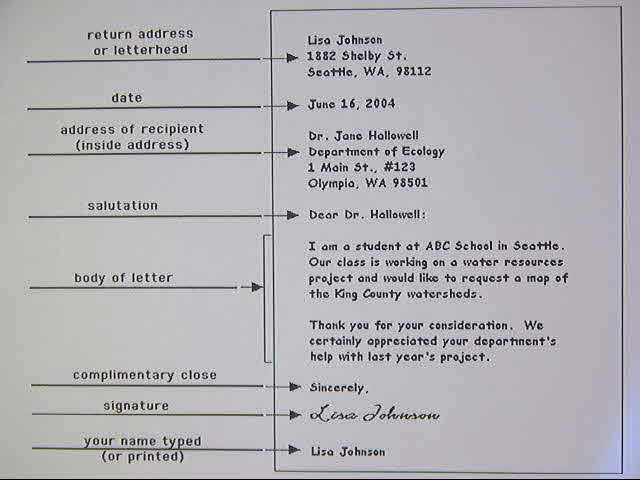 return address
or letterhead
Lisa Johnson
1882 Shelby St.
Seattle, WA, 98112
date
June 16, 2004
address of recipient
(inside address)
Dr. Jane Hallowell
Department of Ecology
1 Main St., #123
Olympia, WA 98501
salutation
Dear Dr. Hallowell:
body of letter
I am a student at ABC School in Seattle.
Our class is working on a water resources
project and would like to request a map of
the King County watersheds.
Thank you for your consideration. We
certainly appreciated your department's
help with last year's project.
complimentary close
Sincerely,
signature
Lisa Johnson
your name typed
(or printed)
Lisa Johnson